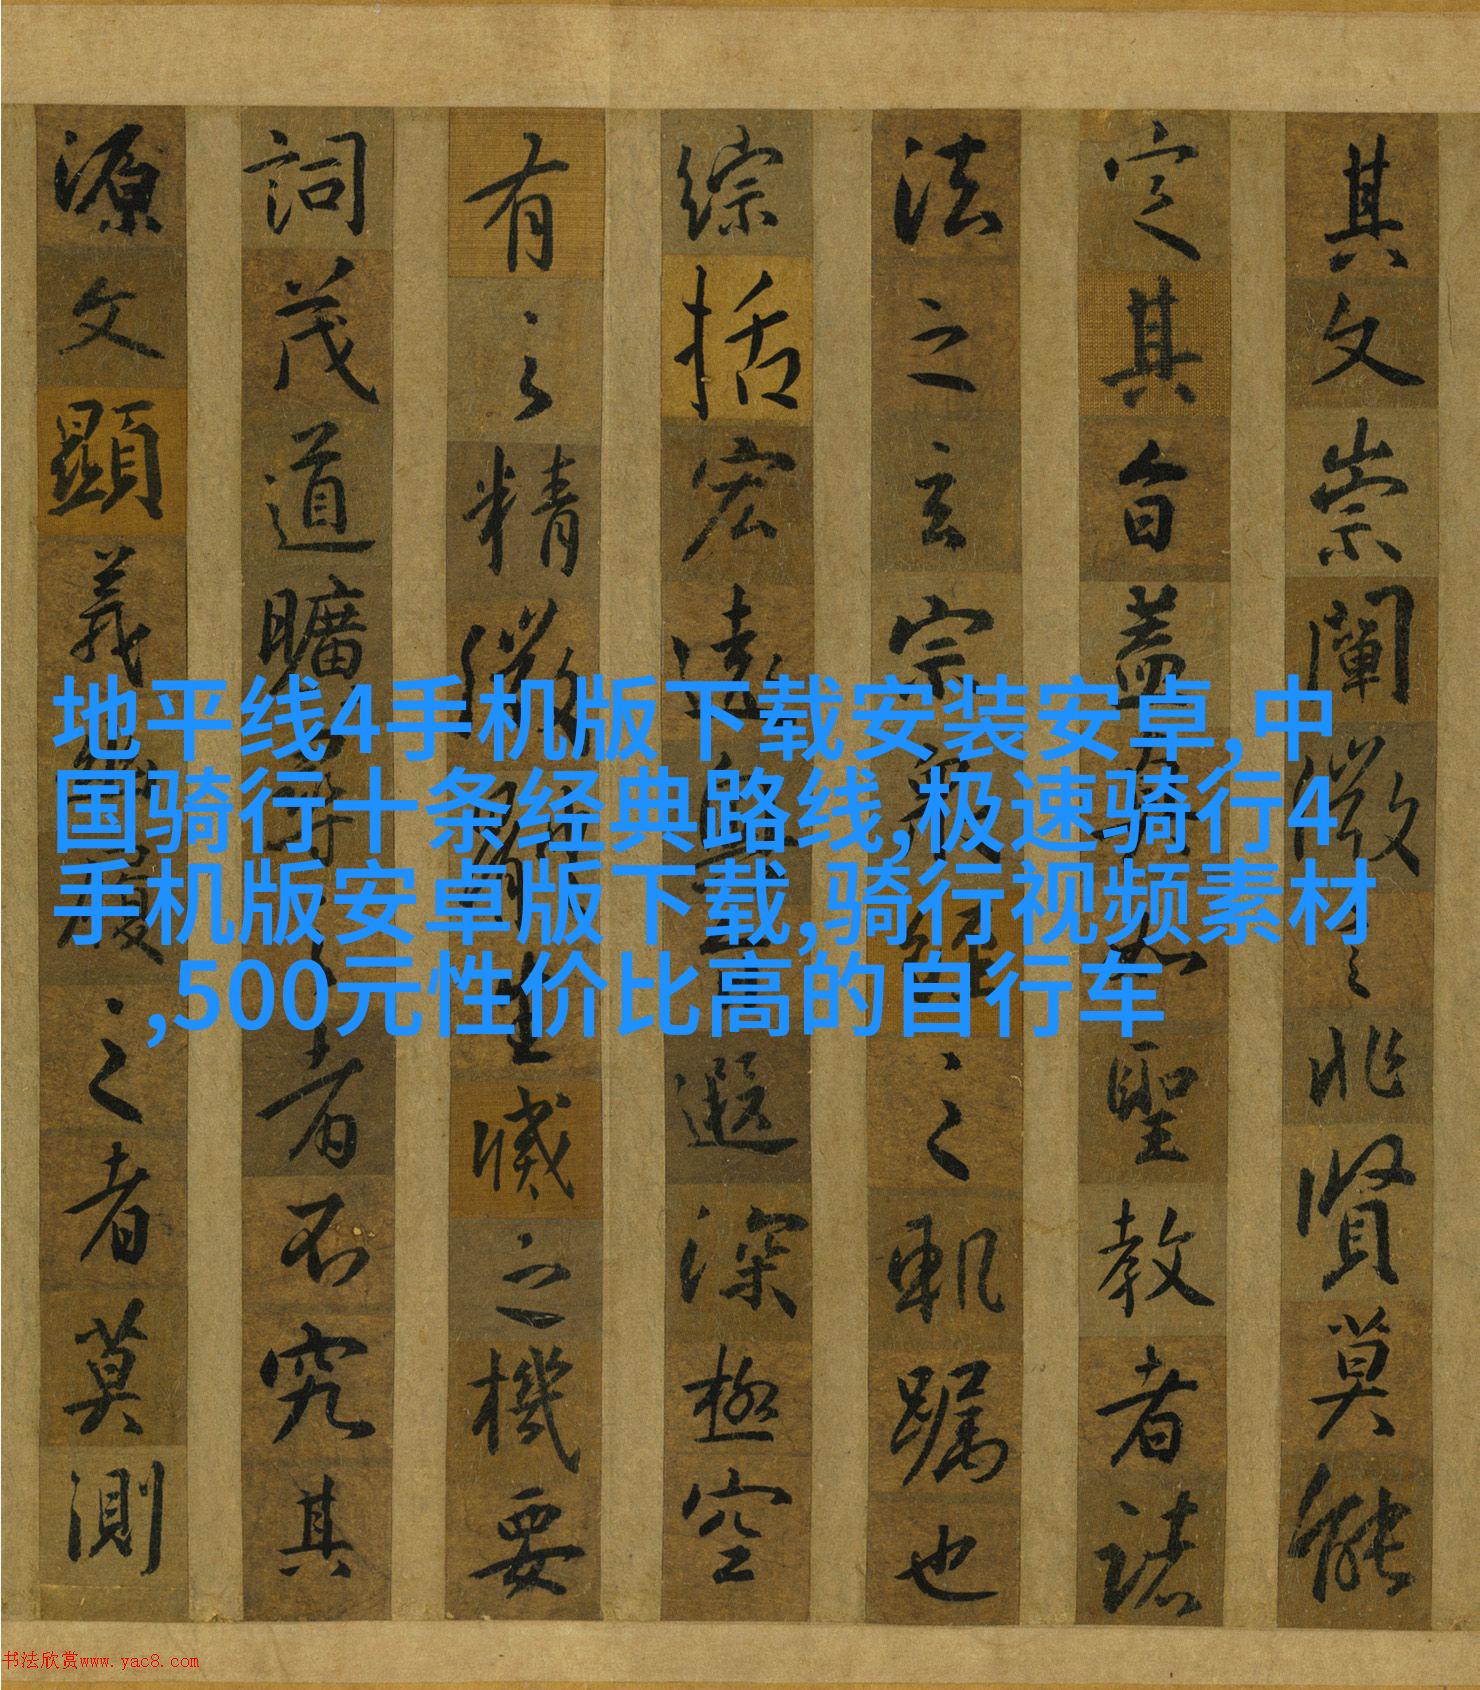 其文崇闡微言非賢莫能
定其旨蓋真如聖教者諸
法之玄宗衆經之軌躅也
綜括宏遠奧旨遐深極空
有之精微體生滅之機要
詞茂道曠尋之者不究其
源文顯義幽履之者莫測
地平线4手机版下载安装安卓,中
国骑行十条经典路线,极速骑行4
手机版安卓版下载,骑行视频素材
,500元性价比高的自行车
书法欣赏www.yac8.com